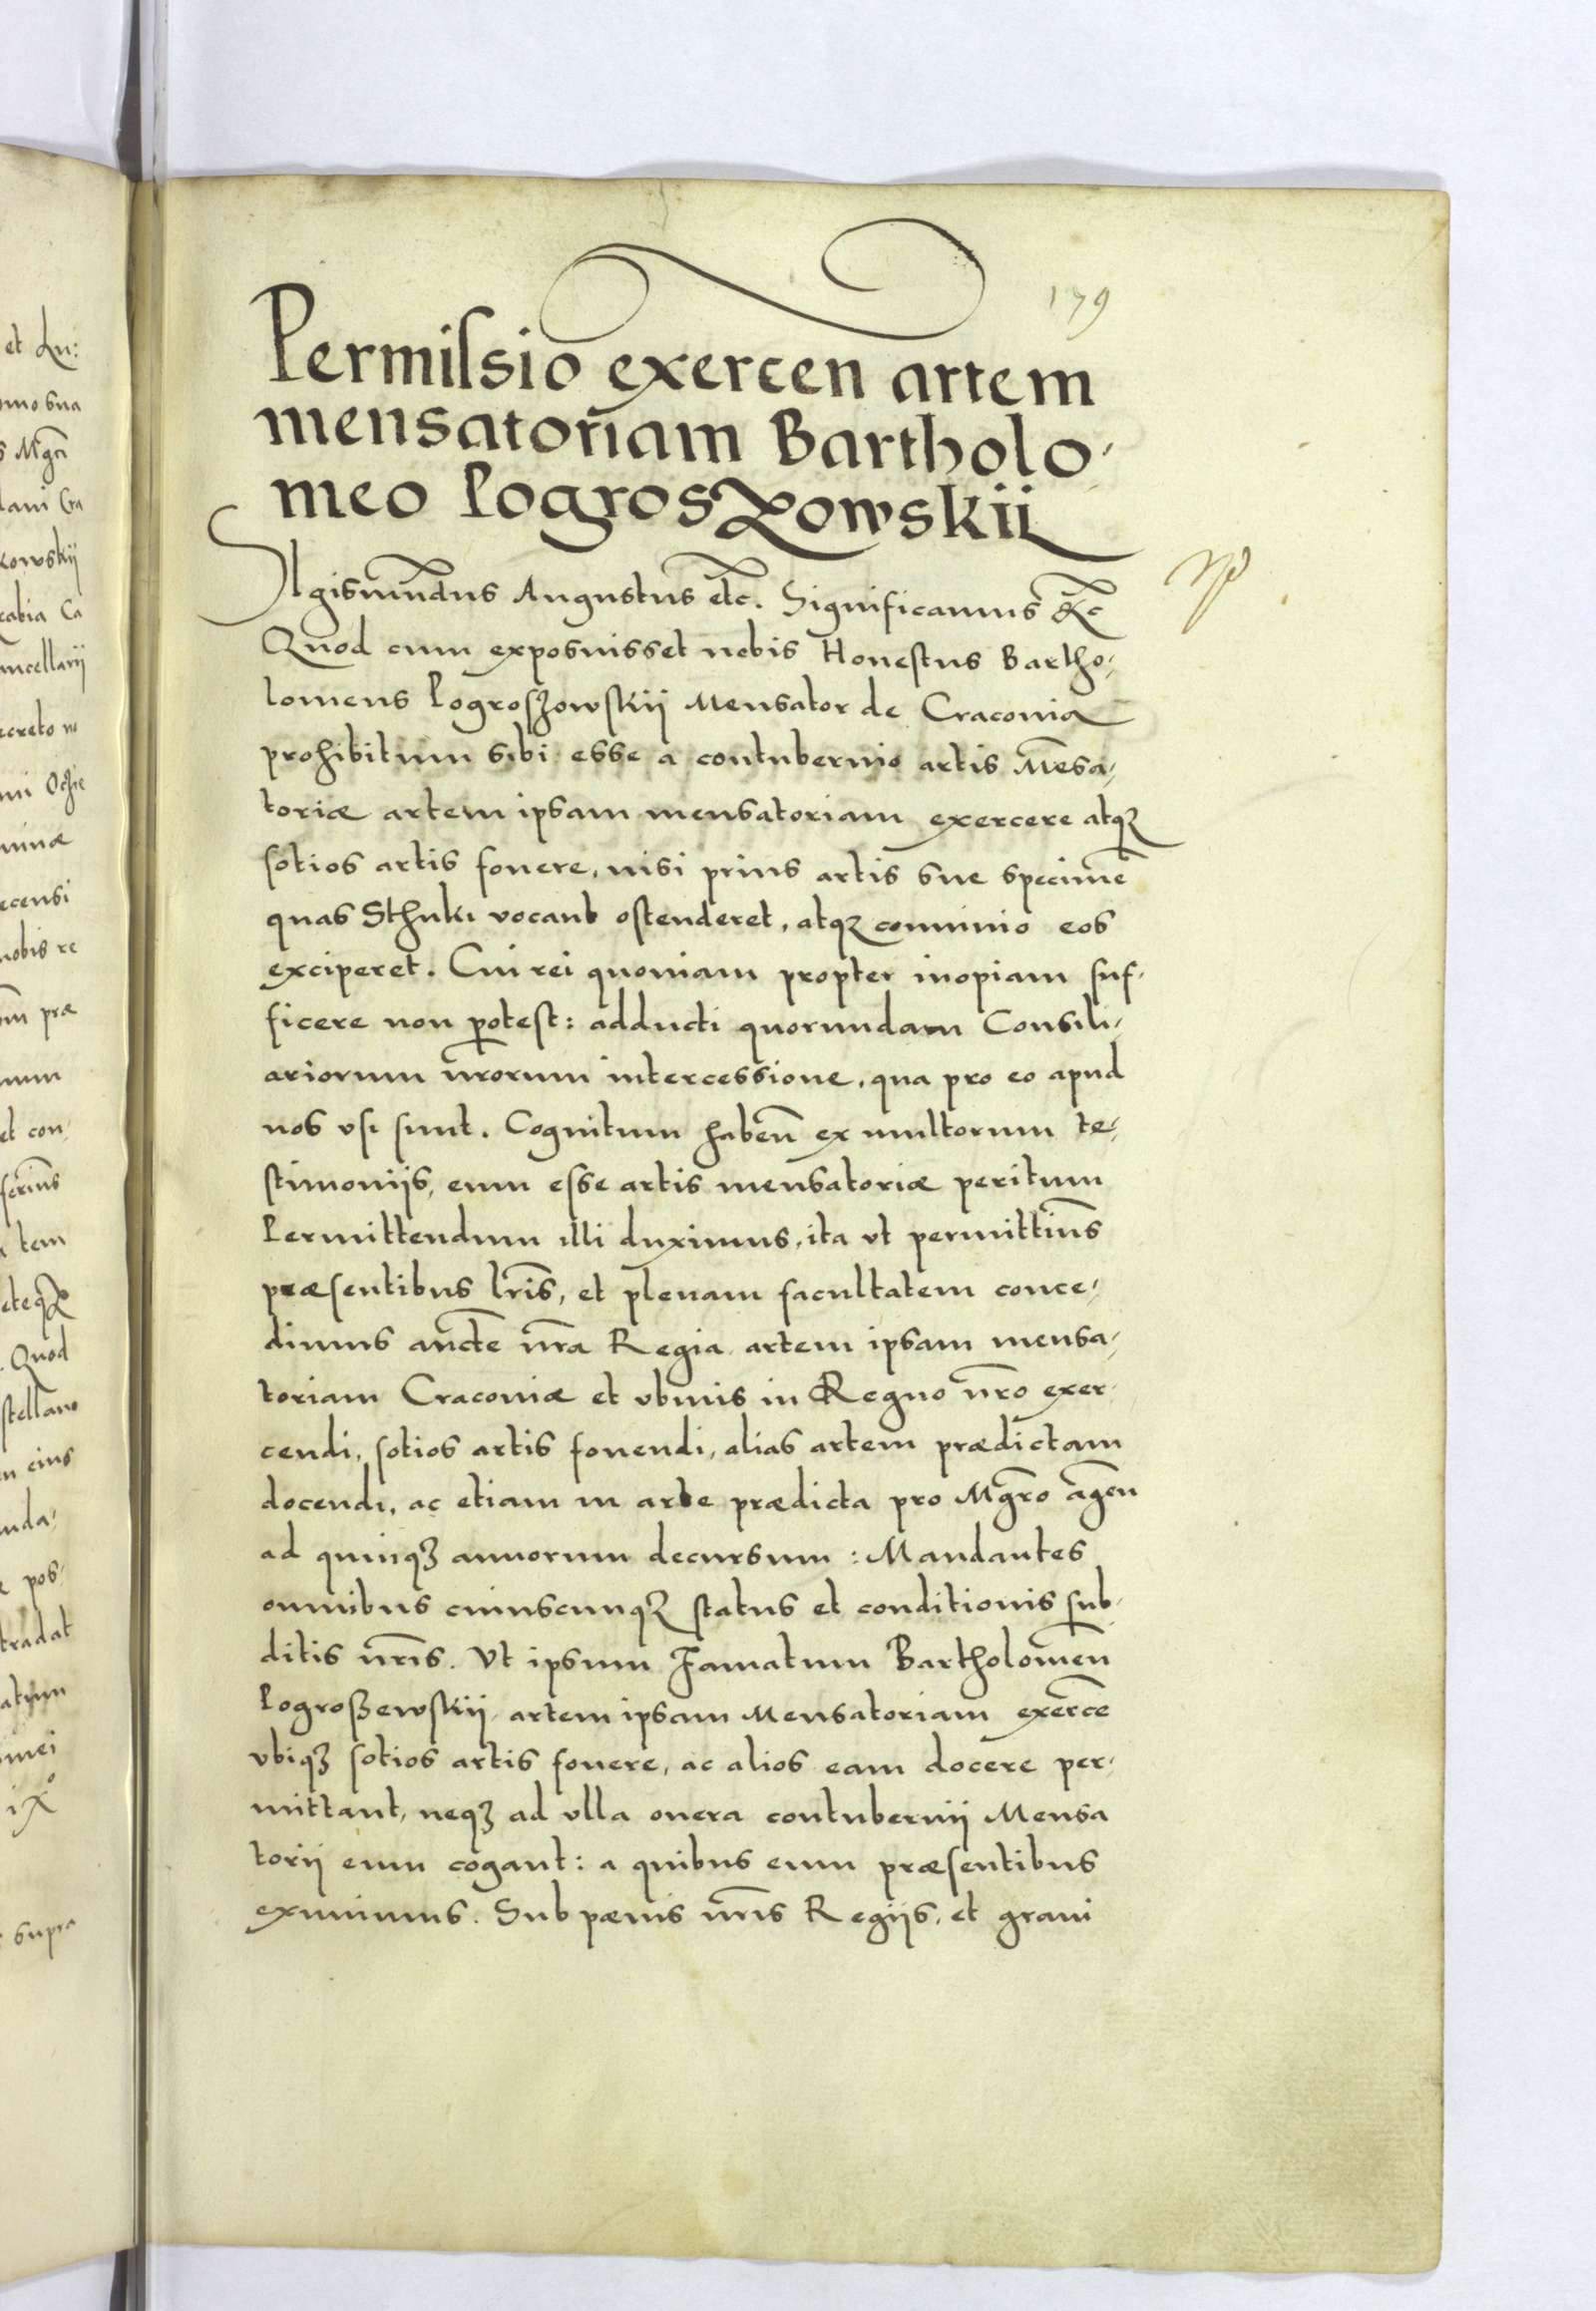 179
Permissio exercen artem
mensatoriam Bartholo-
meo Pogroszowskii
Sigismundus Augustus etc. Significamus &c
Quod cum exposuisset nobis Honestus Bartho-
lomeus Pogroszowskii Mensator de Cracovia
prohibitum sibi esse a contubernio artis Mēsa-
toriæ artem ipsam mensatoriam exercere atqȝ
sotios artis fouere, nisi prius artis sue specimē
quas Sthuki vocant ostenderet, atqȝ conuiuio eos
exciperet. Cui rei quoniam propter inopiam suf-
ficere non potest: adducti quorundam Consili-
ariorum nr̄orum intercessione, qua pro eo apud
nos vsi sunt. Cognitum haben̄ ex multorum te-
stimoniis, eum esse artis mensatoriæ peritum
Permittendum illi duximus, ita vt permittim̄s
præsentibus lr̄is, et plenam facultatem conce-
dimus aucte nr̄a Regia artem ipsam mensa-
toriam Cracouiæ et vbiuis in Regno nr̄o exer-
cendi, sotios artis fouendi, alias artem prædictam
docendi, ac etiam in arte prædicta pro Mgr̄o agen̄
ad quinqȝ annorum decursum: Mandantes
omnibus cuiuscunqȝ status et conditionis sub-
ditis nr̄is. Vt ipsum Famatum Bartholomeū
Pogroszewskii, artem ipsam Mensatoriam exercē
vbiqȝ sotios artis fouere, ac alios eam docere per-
mittant, neqȝ ad vlla onera contubernii Mensa
torii eum cogant: a quibus eum præsentibus
eximimus. Sub pænis nr̄is Regiis, et graui